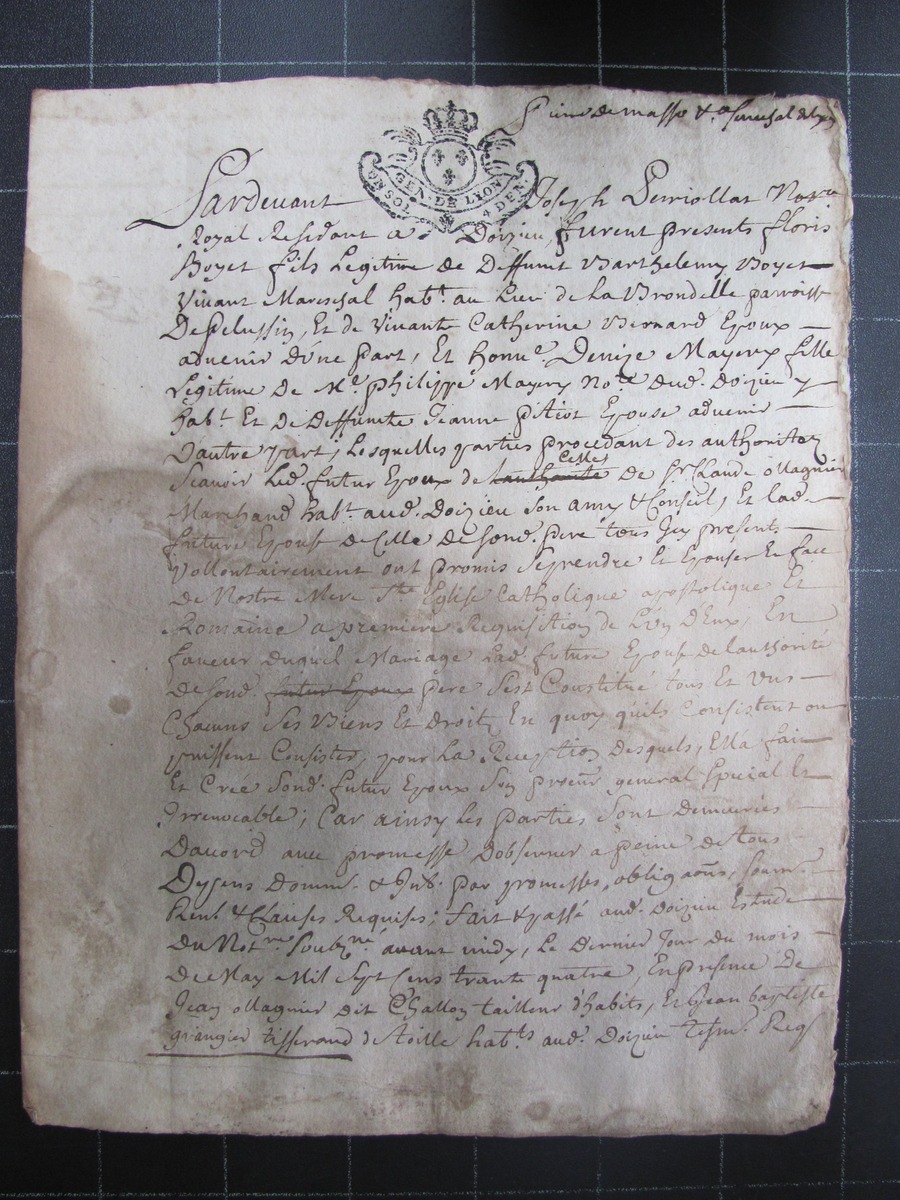 GEN. DE LYON.
UN SOL 4 DEN.
Pardevant Joseph Perriollat Nore
Royal Residant a Doizieu, furent presents floris
Boyet fils Legitime de Deffunt Barthelemy Boyet
Vivant Mareschal habt. au Lieu de La Brondelle parroisse
De Pelussin, Et de Vivante Catherine Bernard Epoux
advenir d'une part, Et honne. Denize Mayery fille
Legitime de Me. philippe Mayery Nore. dud. doizieu y
habt. Et de Deffuncte Jeanne pitiot Epouse advenir
D'autre part, Lesquelles parties procedant des authoritez
Scavoir Led. futur Epoux de lauthorité Celles de Sr. Claude ollagnier
Marchand habt. aud. Doizieu Son amy & Conseil, Et lad.
future Epouse de Celle de Sond. pere tous Icy presents
Vollontairement ont promis Se prendre Et Epouser En face
de Nostre Mere Ste. Eglise Catholique apostolique Et
Romaine a premiere Requisition de L'un D'Eux, En
faveur Duquel Mariage Lad. future Epouse de lauthorité
de Sond. futur Epoux pere S'est Constitué tous Et Uns
Chacuns Ses Biens Et Droits, En quoy quils Consistent ou
puissent Consister, pour La Reception Desquels, Ella fait
Et Créé Sond. futur Epoux Son procur general Special Et
Irrevocable; Car ainsy Les parties Sont demeurées
Dacord avec promesse D'observer a peine de tous
Depens domm. & Int. par promesses, obligaons, soum.
Ren. & Clauses Requises; fait & passé aud. Doizieu Estude
Du Notre. Soubzne. avant midy, Le Dernier Jour du mois
de May Mil Sept Cens trante quatre, En presence de
Jean ollagnier dit Challon tailleur d'habits, Et Jean baptiste
grangier tisserand de toille habts. aud. Doizieu tesm. Req